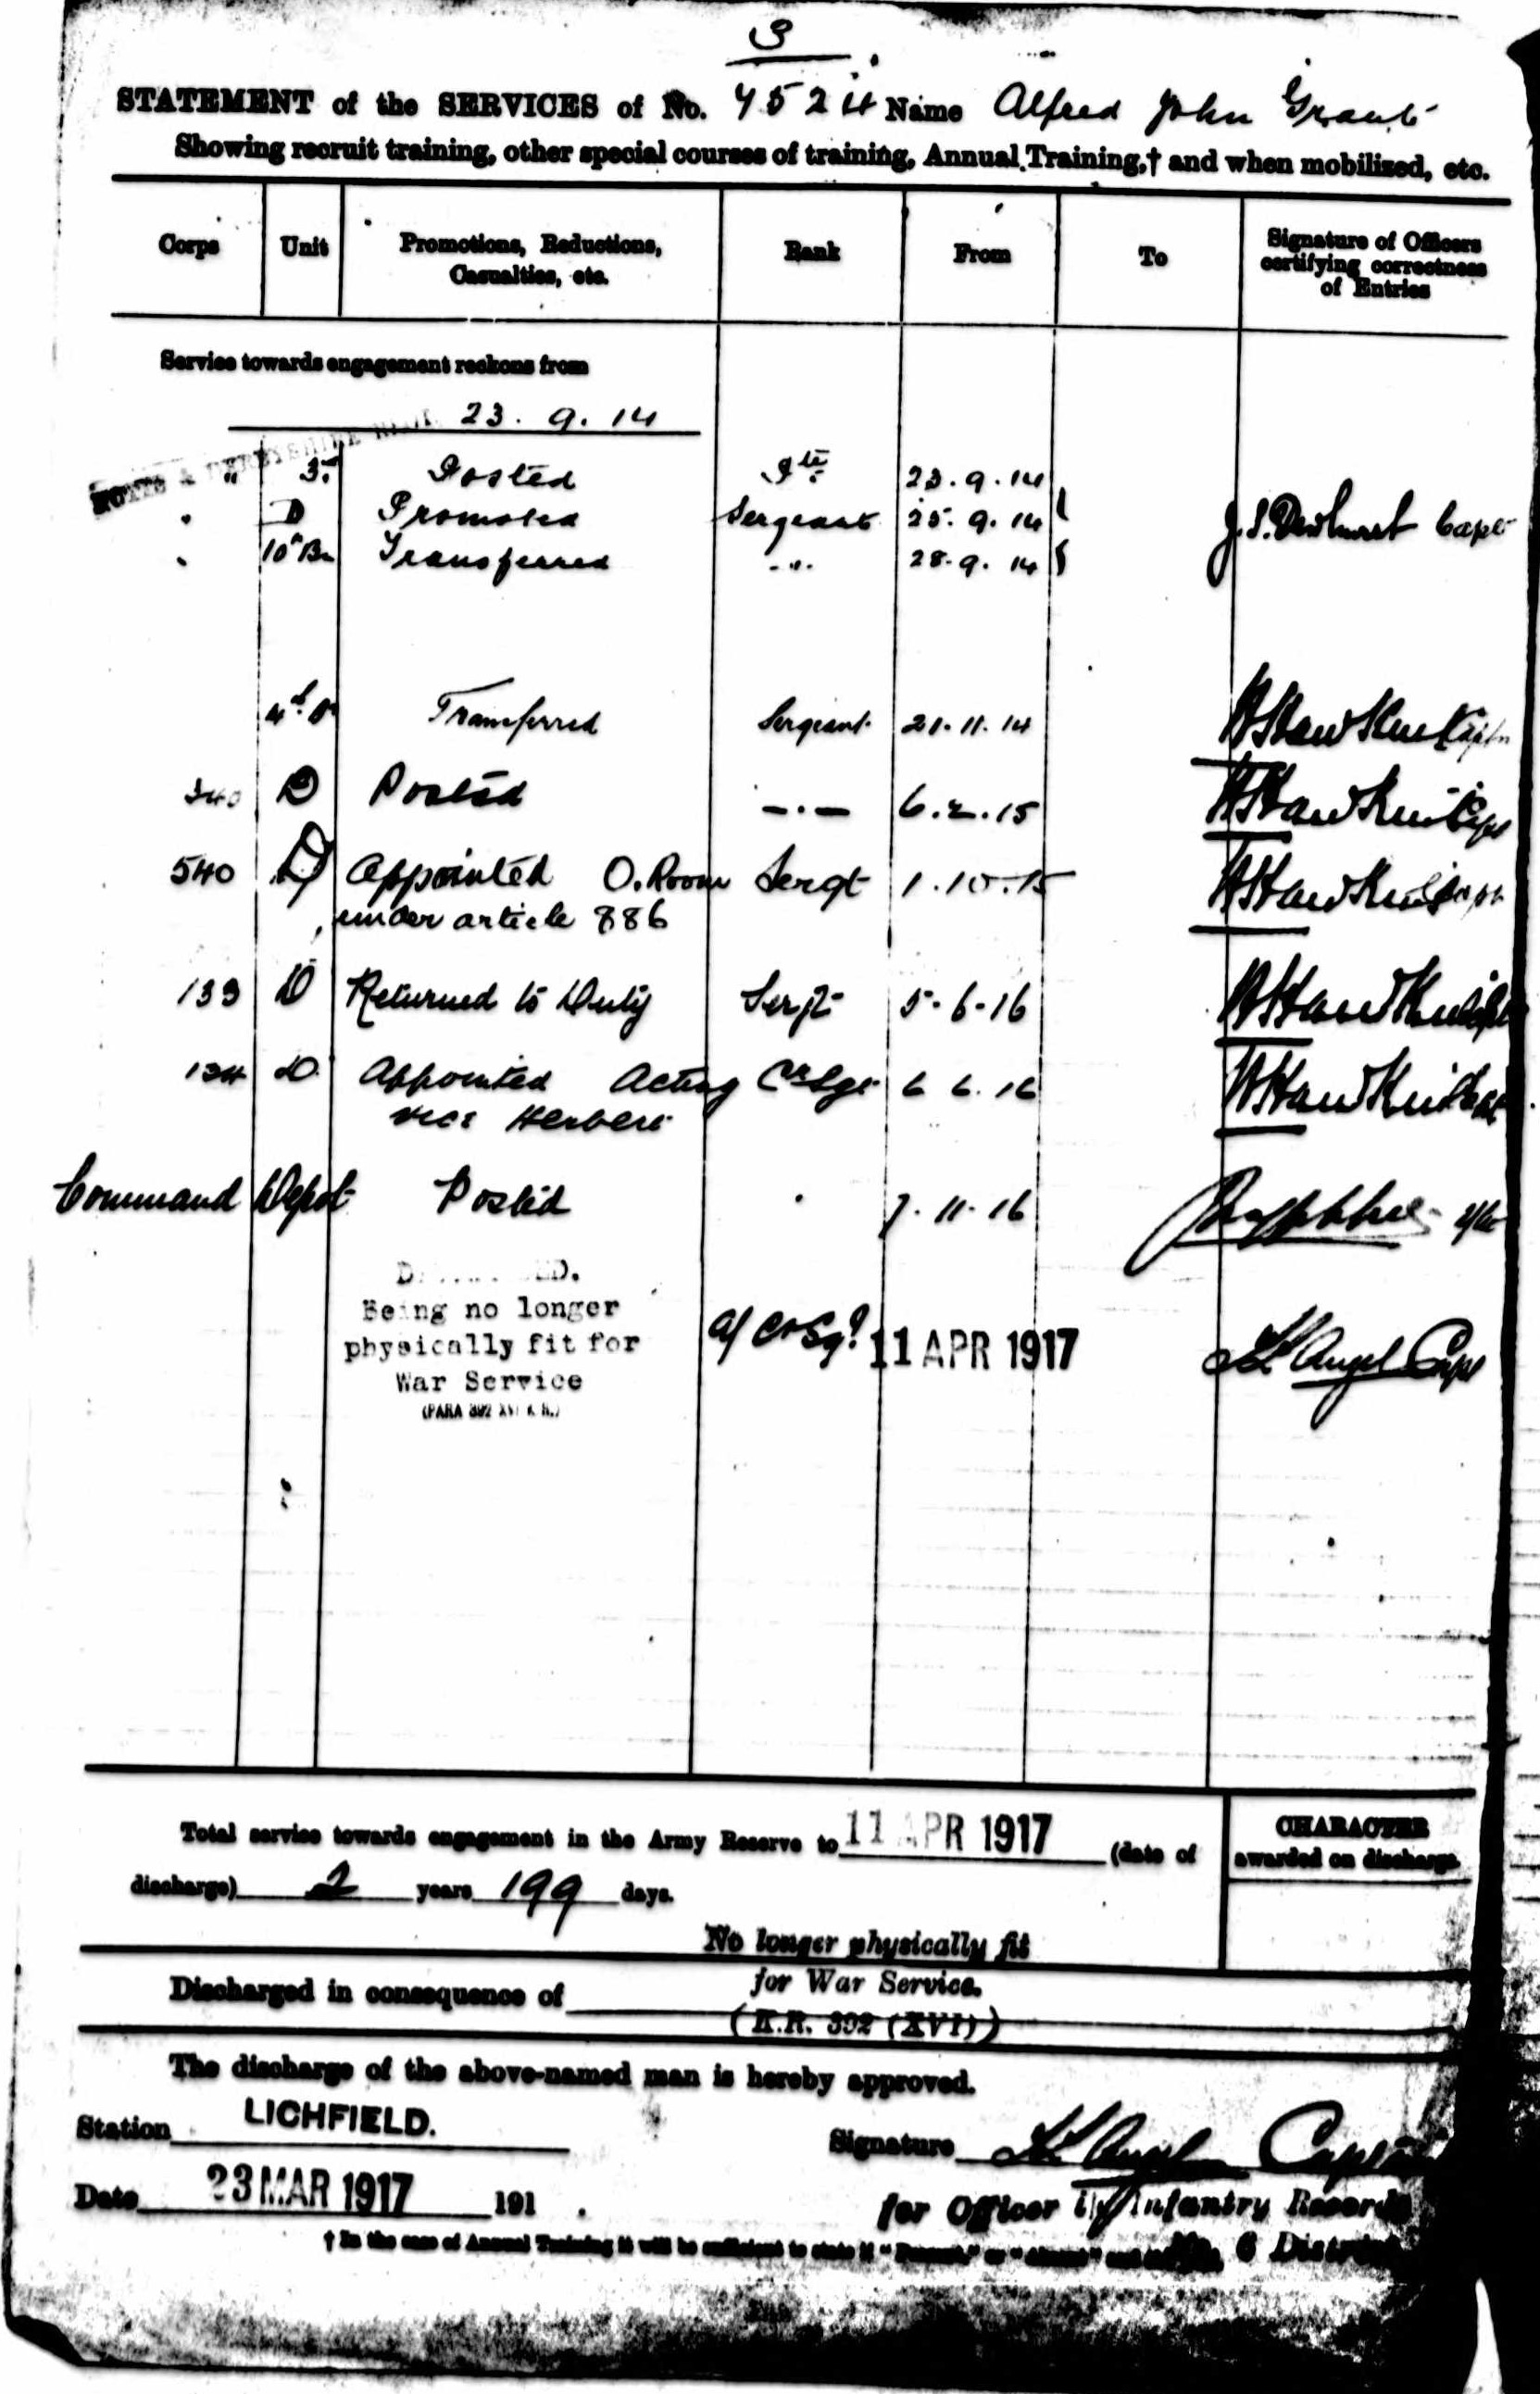 3
STATEMENT of the SERVICES of No. 4524 Name Alfred John Grant
Showing recruit training, other special courses of training, Annual Training,† and when mobilized, etc.
Corps Unit Promotions, Reductions, Casualties, etc. Rank From To Signature of Officers certifying correctness of Entries
Service towards engagement reckons from
23. 9. 14
" 3. Posted Pte 23. 9. 14
" D Promoted Sergeant 25. 9. 14 J.S. Dewhurst Capt
" 10th Bn Transferred -"- 28. 9. 14
4th Transferred Sergeant 21. 11. 14
340 D Posted -.- 6. 2. 15
540 D Appointed O. Room Sergt 1. 10. 15
under article 886
133 D Returned to Duty Sergt 5-6-16
134 D Appointed Acting Cr Sgt 6 6. 16
vice Herbert
Command Depot Posted " 7. 11. 16
Being no longer
physically fit for
War Service
(PARA 392 XVI K.R.)
a/ Cr Sgt 11 APR 1917 Angel Capt
Total service towards engagement in the Army Reserve to 11 APR 1917 (date of
discharge) 2 years 199 days.
CHARACTER
awarded on discharge.
No longer physically fit
Discharged in consequence of for War Service.
(K.R. 392 (XVI))
The discharge of the above-named man is hereby approved.
Station LICHFIELD.
Signature Angel Captain
Date 23 MAR 1917 191 .
for Officer i/c Infantry Records
† In the case of Annual Training it will be sufficient to state if "Present," or "Absent"
No. 6 District